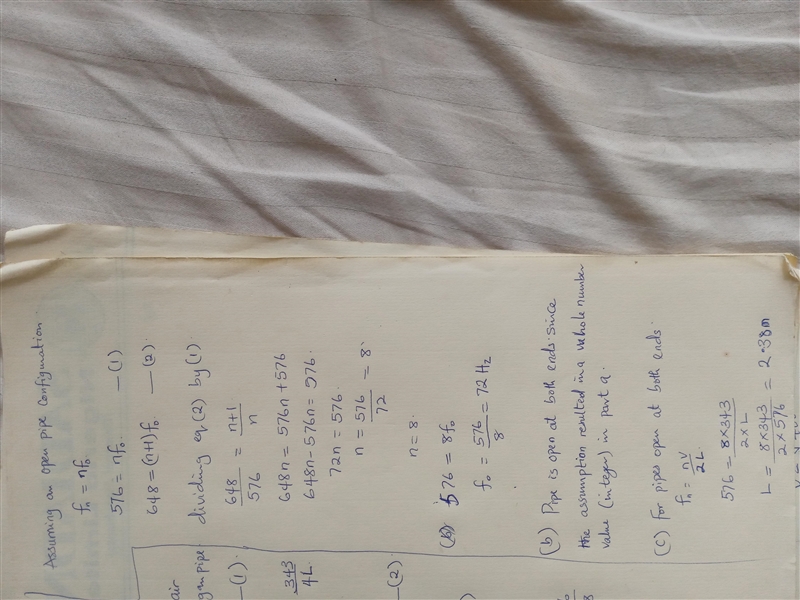 Assuming an open pipe Configuration.
fn = nf₀
576 = nf₀. —(1)
648 = (n+1)f₀ —(2).
dividing eq (2) by (1).
648/576 = n+1/n
648n = 576n + 576
648n - 576n = 576.
72n = 576.
n = 576/72 = 8.
n = 8.
576 = 8f₀
f₀ = 576/8 = 72 Hz
(b) Pipe is open at both ends. since
the assumption resulted in a whole number
value (integer) in part a.
(C) for pipes open at both ends.
fn = nv/2L
576 = 8×343/2×L
L = 8×343/2×576 = 2.38m
air
gan pipe.
—(1).
343/4L
—(2)